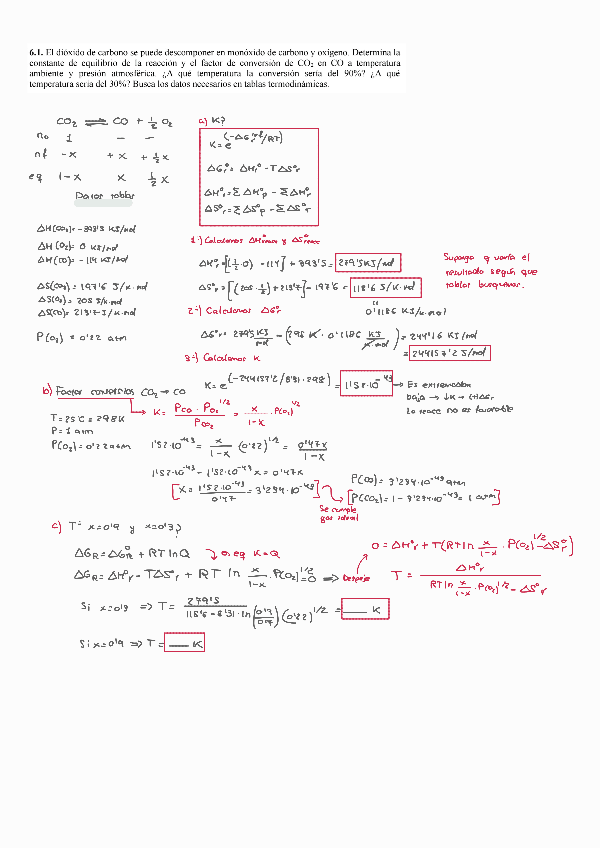 6.1. El dióxido de carbono se puede descomponer en monóxido de carbono y oxígeno. Determina la
constante de equilibrio de la reacción y el factor de conversión de CO₂ en CO a temperatura
ambiente y presión atmosférica. ¿A qué temperatura la conversión sería del 90%? ¿A qué
temperatura sería del 30%? Busca los datos necesarios en tablas termodinámicas.
CO₂ ⇌ CO + 1/2 O₂
n₀ 1 – –
nf -x +x +1/2 x
eq 1-x x 1/2 x
Datos tablas
ΔH(CO₂)= -393'5 KJ/mol
ΔH(O₂)= 0 KJ/mol
ΔH(CO)= -114 KJ/mol
ΔS(CO₂)= 197'6 J/K·mol
ΔS(O₂)= 205 J/K·mol
ΔS(CO)= 213'7 J/K·mol
P(O₂) = 0'22 atm
a) K?
K = e^(-ΔG°r/RT)
ΔG°r = ΔH°r - TΔS°r
ΔH°r = Σ ΔH°p - Σ ΔH°r
ΔS°r = Σ ΔS°p - Σ ΔS°r
1-) Calculamos ΔH°reacc y ΔS°reacc
ΔH°r = [(1/2·0) - 114] + 393'5 = 279'5 KJ/mol
ΔS°r = [(205·1/2) + 213'7] - 197'6 = 118'6 J/K·mol
Supongo q varía el
resultado según que
tablas busquemos.
2-) Calculamos ΔG°r
0'1186 KJ/K·mol
ΔG°r = 279'5 KJ/mol - (298 K · 0'1186 KJ/K·mol) = 244'16 KJ/mol
= 244157'2 J/mol
3-) Calculamos K
K = e^(-244157'2/8'31·298) = 1'52·10^-43 → Es extremadam.
baja → ↓K → (+)ΔGr
la reacc no es favorable
b) Factor conversión CO₂ → CO
K = Pco · Po₂^1/2 / Pco₂ = x/1-x · P(O₂)^1/2
T = 25°C = 298K
P = 1 atm
P(O₂) = 0'22 atm
1'52·10^-43 = x/1-x (0'22)^1/2 = 0'47x/1-x
1'52·10^-43 - 1'52·10^-43 x = 0'47x
[x = 1'52·10^-43/0'47 = 3'234·10^-43]
Se cumple
gas ideal
P(CO) = 3'234·10^-43 atm
[P(CO₂) = 1 - 3'234·10^-43 = 1 atm]
c) T? x=0'9 y x=0'3?
ΔGR = ΔG°R + RT lnQ ↴ a eq K=Q
ΔGR = ΔH°r - TΔS°r + RT ln x/1-x · P(O₂)^1/2 = 0 ⇒ Despejo
0 = ΔH°r + T(R ln x/1-x · P(O₂)^1/2 - ΔS°r)
T = ΔH°r / RT ln x/1-x · P(O₂)^1/2 - ΔS°r
Si x=0'3 ⇒ T = 279'5 / 118'6 - 8'31·ln(0'3/0'7)(0'22)^1/2 = ___ K
Si x=0'9 ⇒ T = ___ K